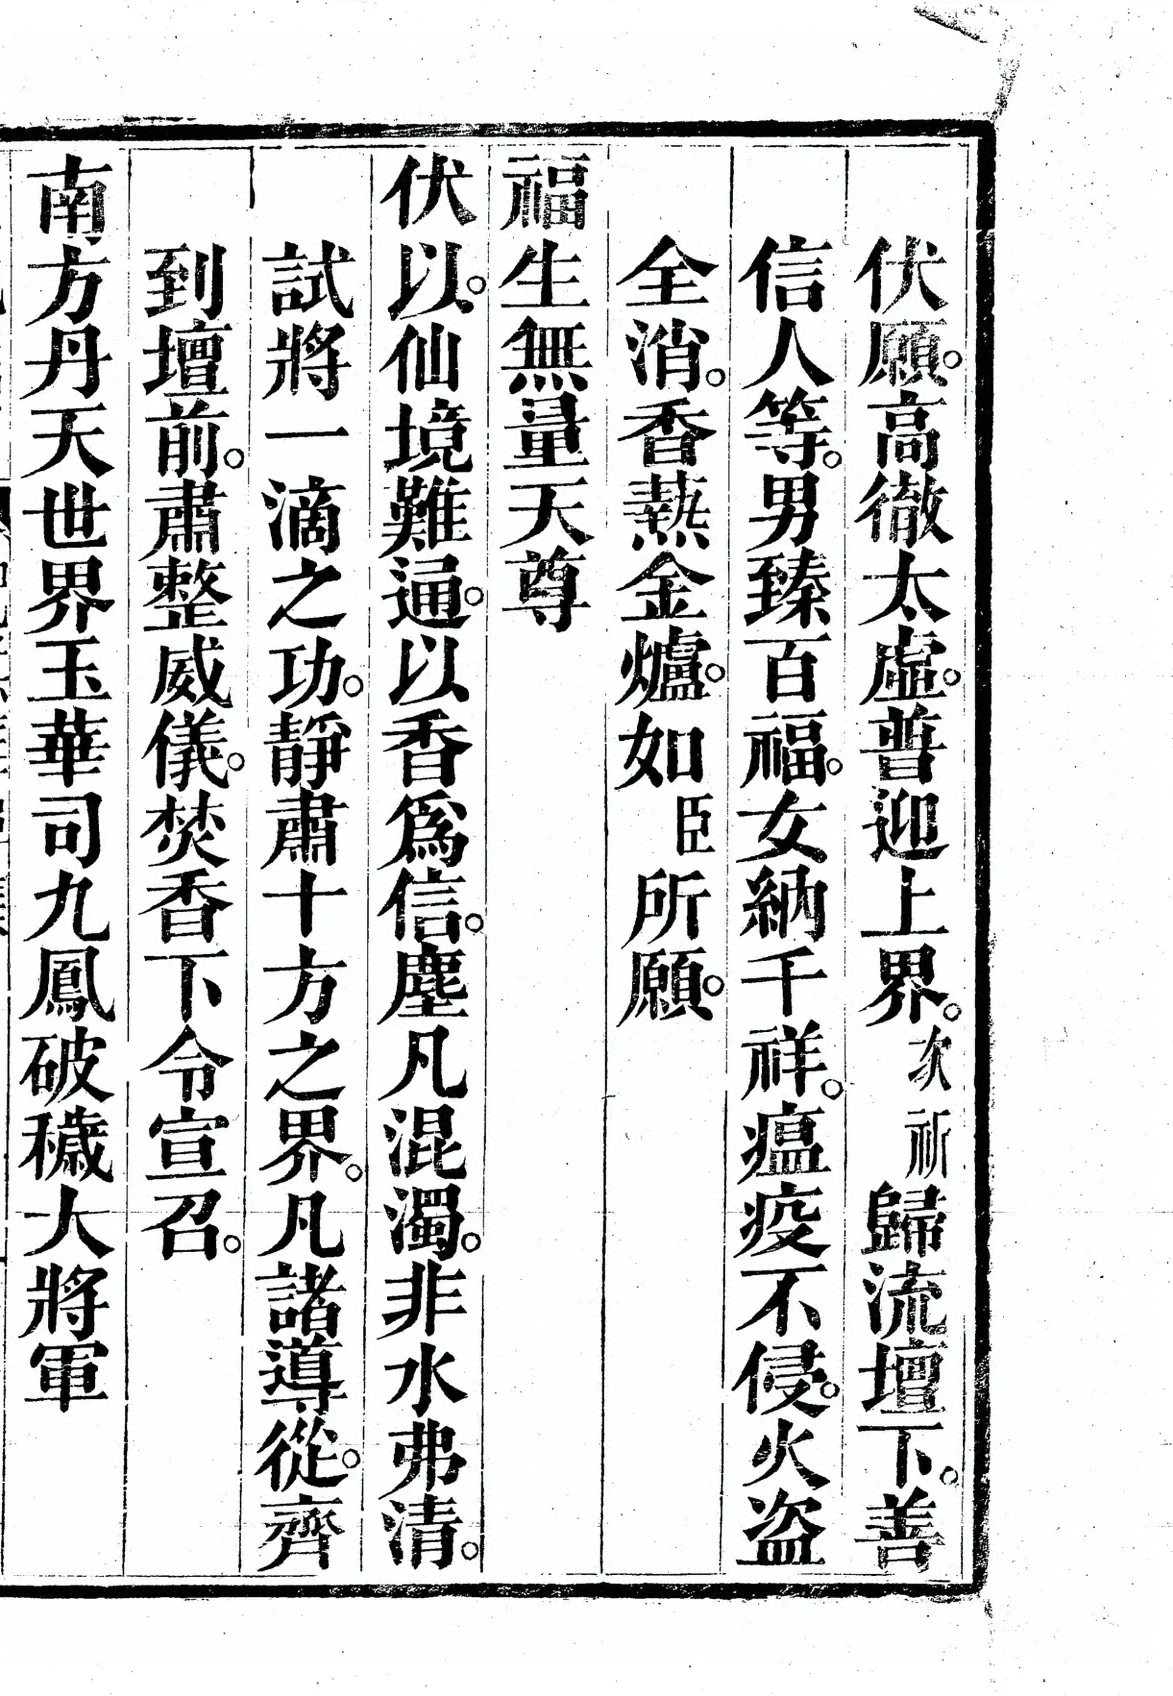 伏願。高徹太虛。普迎上界。次祈歸流壇下。善
信人等。男臻百福。女納千祥。瘟疫不侵。火盜
全消。香熱金爐。如臣所願。
福生無量天尊
伏以。仙境難通。以香爲信。塵凡混濁。非水弗清。
試將一滴之功。靜肅十方之界。凡諸導從。齊
到壇前。肅整威儀。焚香下令宣召。
南方丹天世界玉華司九鳳破穢大將軍